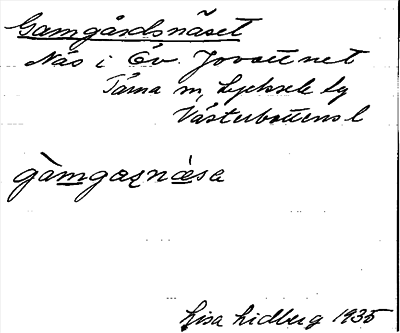 Gamgårdsnäset
Näs i Öv. Jovattnet
Tärna sn, Lycksele lg
Västerbottens l
gàmgaṣnǽsa
Lisa Lidberg 1935